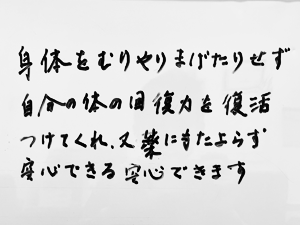 身体をむりやりまげたりせず
自分の体の回復力を復活
つけてくれ、又薬にもたよらず
安心できる安心できます